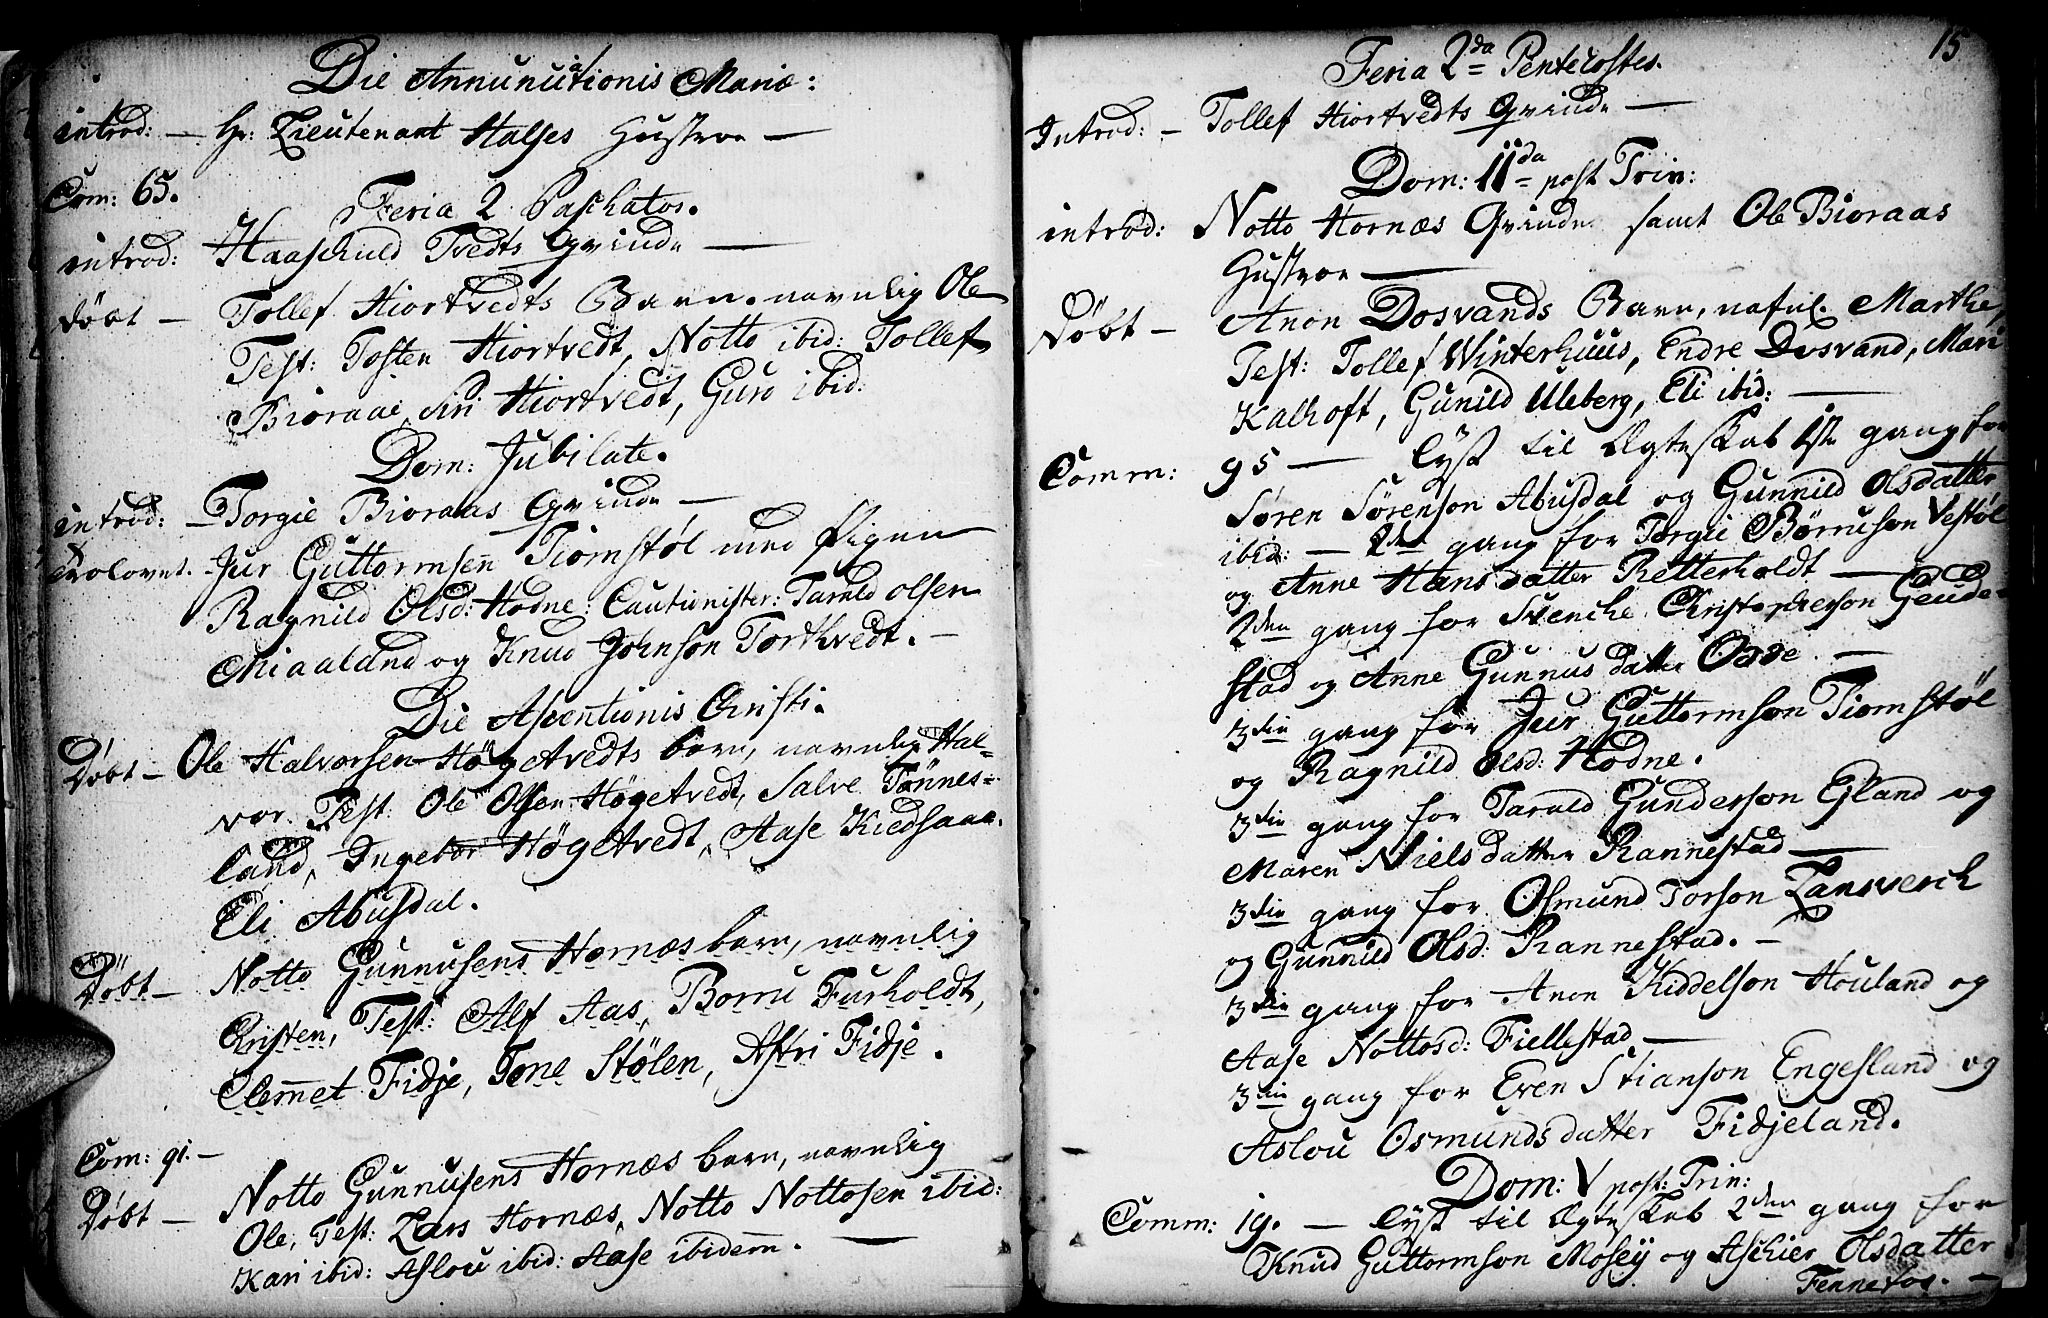 Die Annunciationis Mariæ:
introd: — Hr: Lieutenant Halses Hustroe —
Com: 65.
Feria 2 Paschatos.
introd: Haaschuld Tvedts Qvinde —
Döbt — Tollef Hiortvedts Barn, navnlig Ole
Test: Tosten Hiortvedt, Notto ibid: Tollef
Bioraas, Siri Hiortvedt, Guro ibid:
Dom: Jubilate.
introd: — Torgie Bioraas Qvinde —
Trolovet. Jur Guttormsen Tiomstøl med Pigen
Ragnild Olsd: Hodne: Cautionister: Tarald Olsen
Miaaland og Knud Johnson Tortkvedt. —
Die Ascentionis Christi.
Döbt — Ole Halvorsen Högetvedts barn, navnlig Hal-
vor. Test: Ole Olsen Högetvedt, Salve Tønnes-
land, Ingebor Högetvedt, Aase Kiedsaae.
Eli Abusdal.
Döbt — Notto Gunnusens Hornæs barn, navnlig
Christen, Test: Alf Aas, Borru Furholdt,
Clemmet Fidje, Tone Stølen, Astri Fidje.
Com: 91. —
Döbt — Notto Gunnusens Hornæs barn, navnlig
Ole, Test: Lars Hornæs, Notto Nottosen ibid:
Kari ibid: Aslou ibid: Aase ibidem. —
15
Feria 2da Pentecostes.
Introd: — Tollef Hiortvedts Qvinde —
Dom: IIda post Trin:
introd: Notto Hornæs Qvinde samt Ole Bioraas
Hustroe —
Döbt — Anon Dosvands Barn, nafnl. Marthe,
Test: Tollef Winterhuus, Endre Dosvand, Mari
Kalhoft, Gunild Uleberg, Eli ibid: —
Comm: 95 — Lyst til Ægteskab 1ste gang for
Søren Sørenson Abusdal og Gunnild Olsdatter
ibid: — 2den gang for Torgie Börruson Vestøl
og Anne Hansdatter Retterholdt —
2den gang for Svenche Christopherson Gende-
stad og Anne Gunnusdatter Ogge. —
3die gang for Jur Guttormson Tiomstøl
og Ragnild Olsd: Hodne.
3die gang for Tarald Gunderson Egland og
Maren Nielsdatter Rannestad —
3die gang for Osmund Torson Lansverck
og Gunnild Olsd: Rannestad. —
3die gang for Anon Kiddelson Houland og
Aase Nottosd: Fiellestad —
3die gang for Even Stianson Engesland og
Aslou Osmundsdatter Fidjeland.
Dom: V post: Trin:
Comm: 19. — Lyst til Ægteskab 2den gang for
Knud Guttormson Mosey og Aschier Olsdatter
Fennefos. —